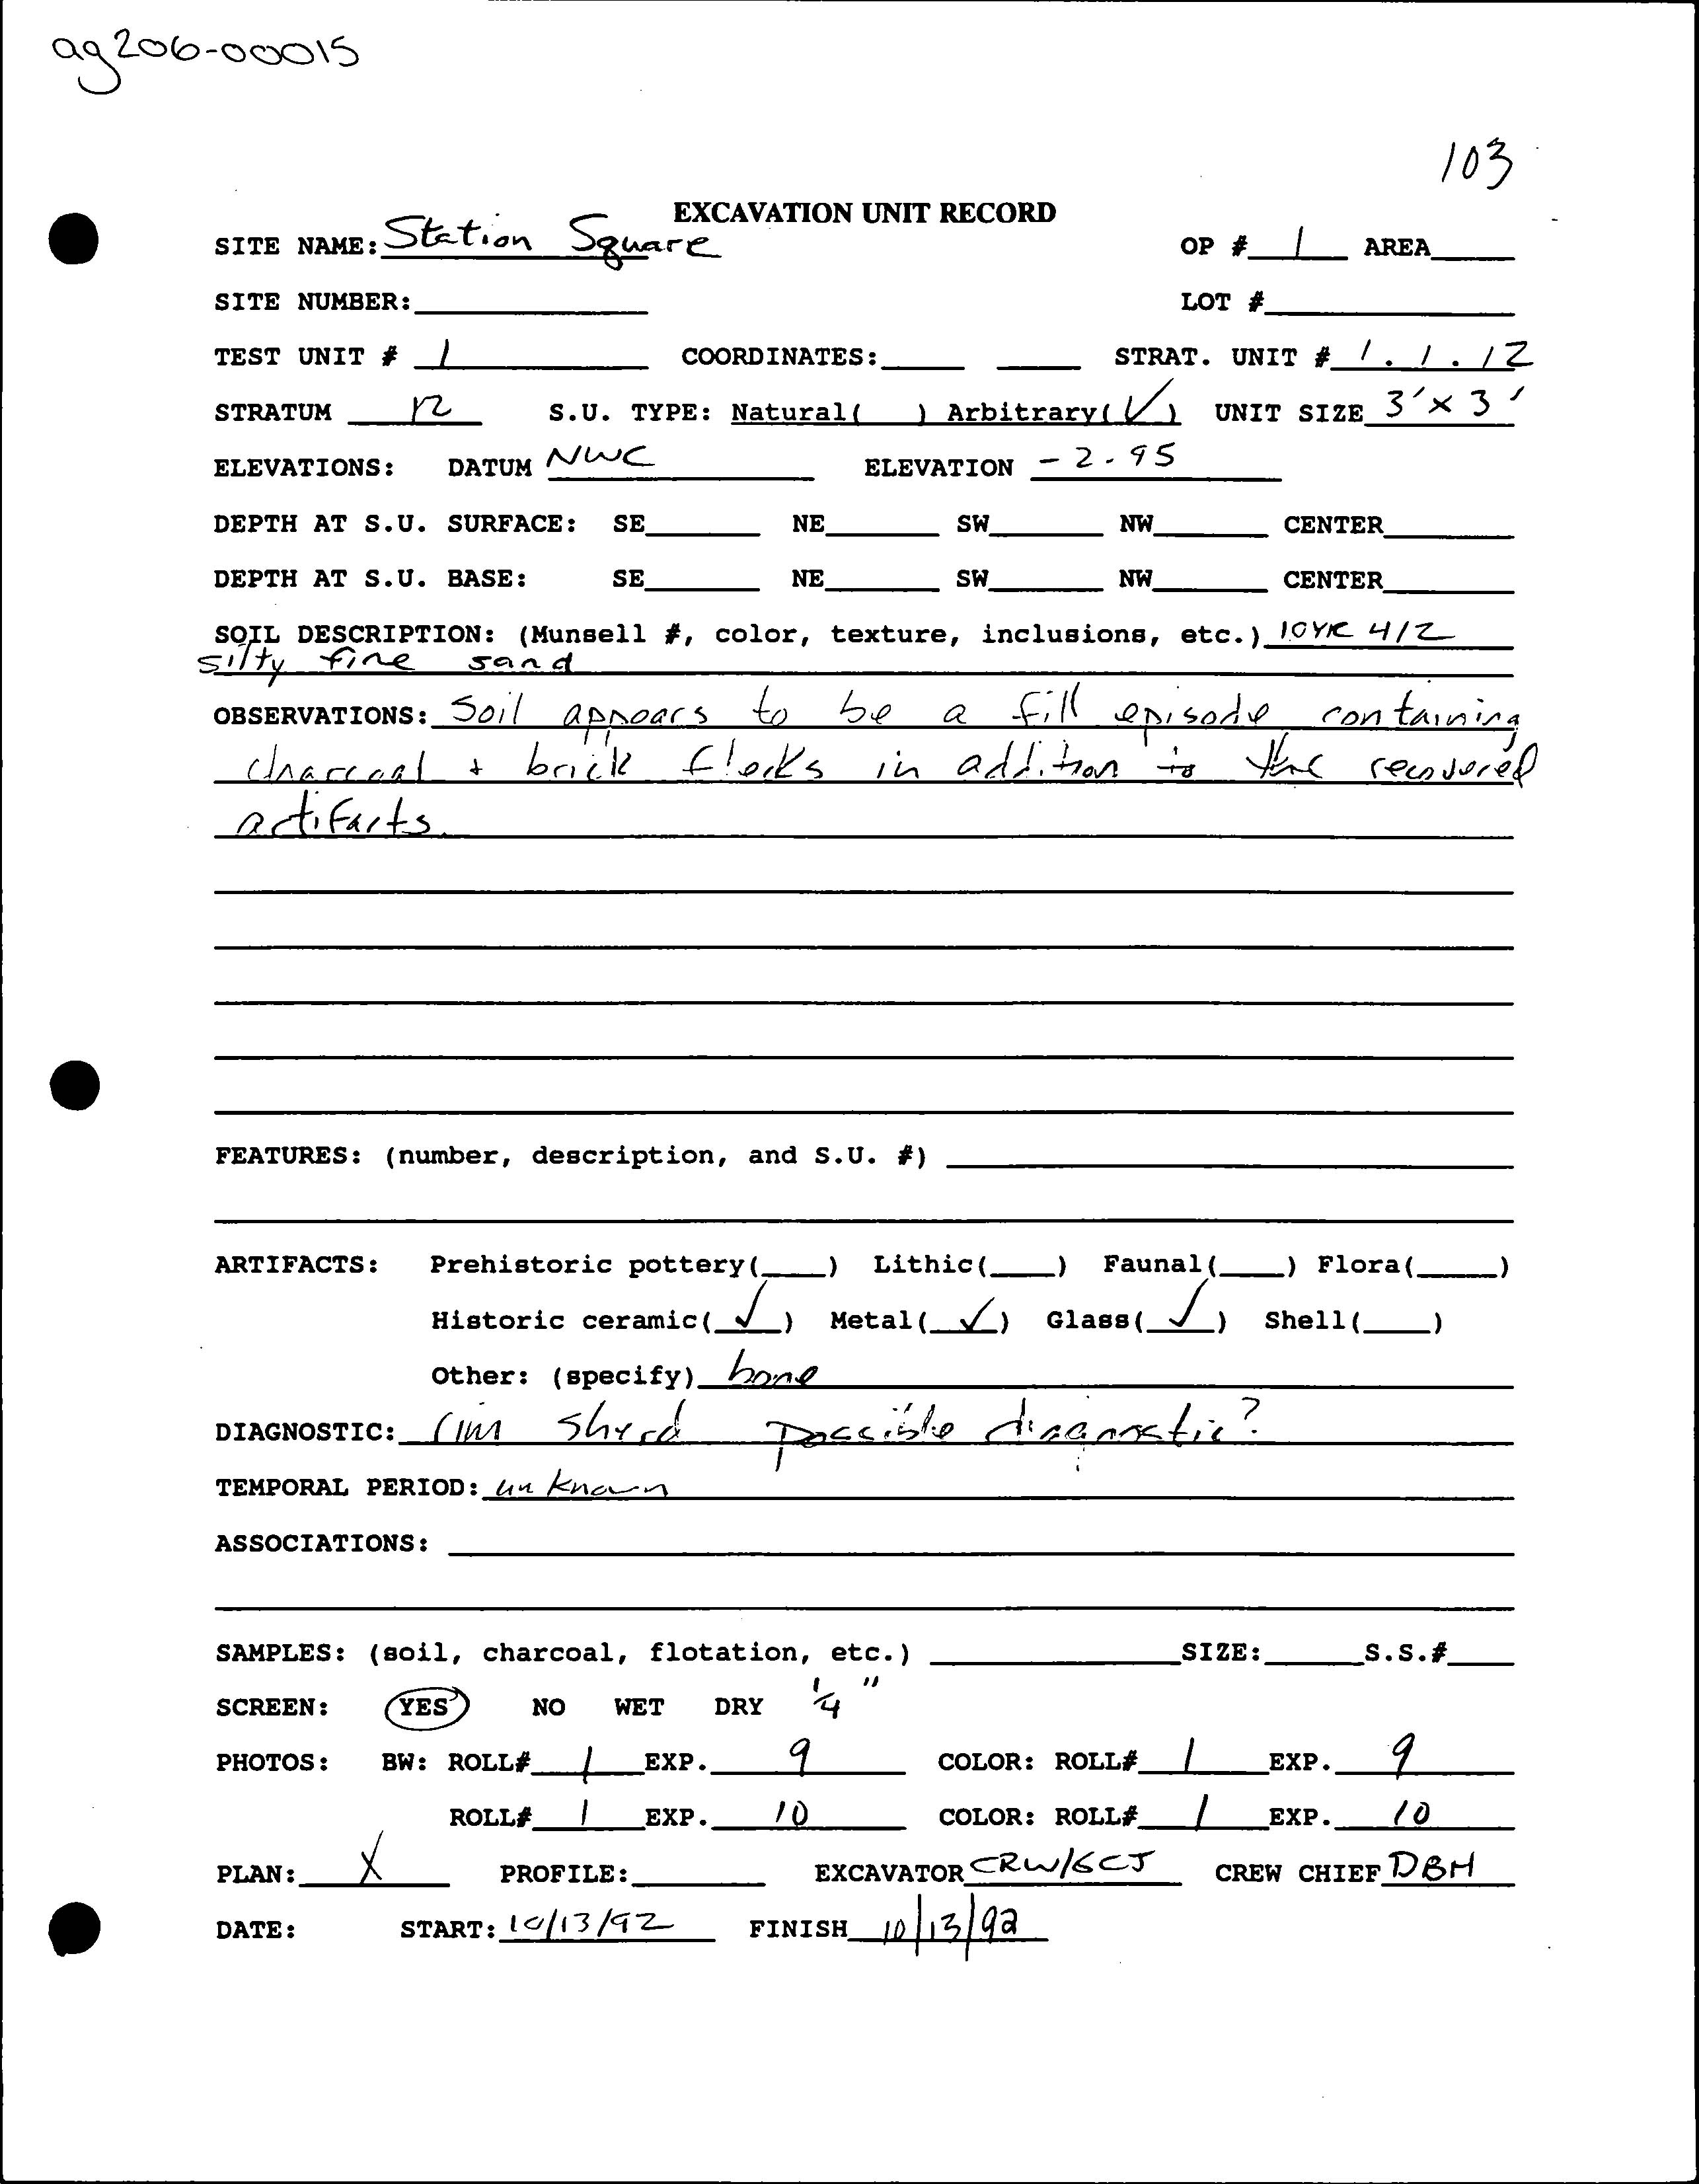 ag206-00015
103
EXCAVATION UNIT RECORD
SITE NAME: Station Square OP # 1 AREA
SITE NUMBER: LOT #
TEST UNIT # 1 COORDINATES: STRAT. UNIT # 1 . 1 . 12
STRATUM 12 S.U. TYPE: Natural( ) Arbitrary(✓) UNIT SIZE 3'x 3'
ELEVATIONS: DATUM NWC ELEVATION -2.95
DEPTH AT S.U. SURFACE: SE NE SW NW CENTER
DEPTH AT S.U. BASE: SE NE SW NW CENTER
SOIL DESCRIPTION: (Munsell #, color, texture, inclusions, etc.) 10YR 4/2
silty fine sand
OBSERVATIONS: Soil appears to be a fill episode containing
charcoal + brick flecks in addition to the recovered
artifacts.
FEATURES: (number, description, and S.U. #)
ARTIFACTS: Prehistoric pottery( ) Lithic( ) Faunal( ) Flora( )
Historic ceramic(✓) Metal(✓) Glass(✓) Shell( )
Other: (specify) bone
DIAGNOSTIC: rim sherd possible diagnostic?
TEMPORAL PERIOD: unknown
ASSOCIATIONS:
SAMPLES: (soil, charcoal, flotation, etc.) SIZE: S.S.#
SCREEN: YES NO WET DRY 1/4"
PHOTOS: BW: ROLL# 1 EXP. 9 COLOR: ROLL# 1 EXP. 9
ROLL# 1 EXP. 10 COLOR: ROLL# 1 EXP. 10
PLAN: X PROFILE: EXCAVATOR CRW/GCJ CREW CHIEF DBH
DATE: START: 10/13/92 FINISH 10/13/92